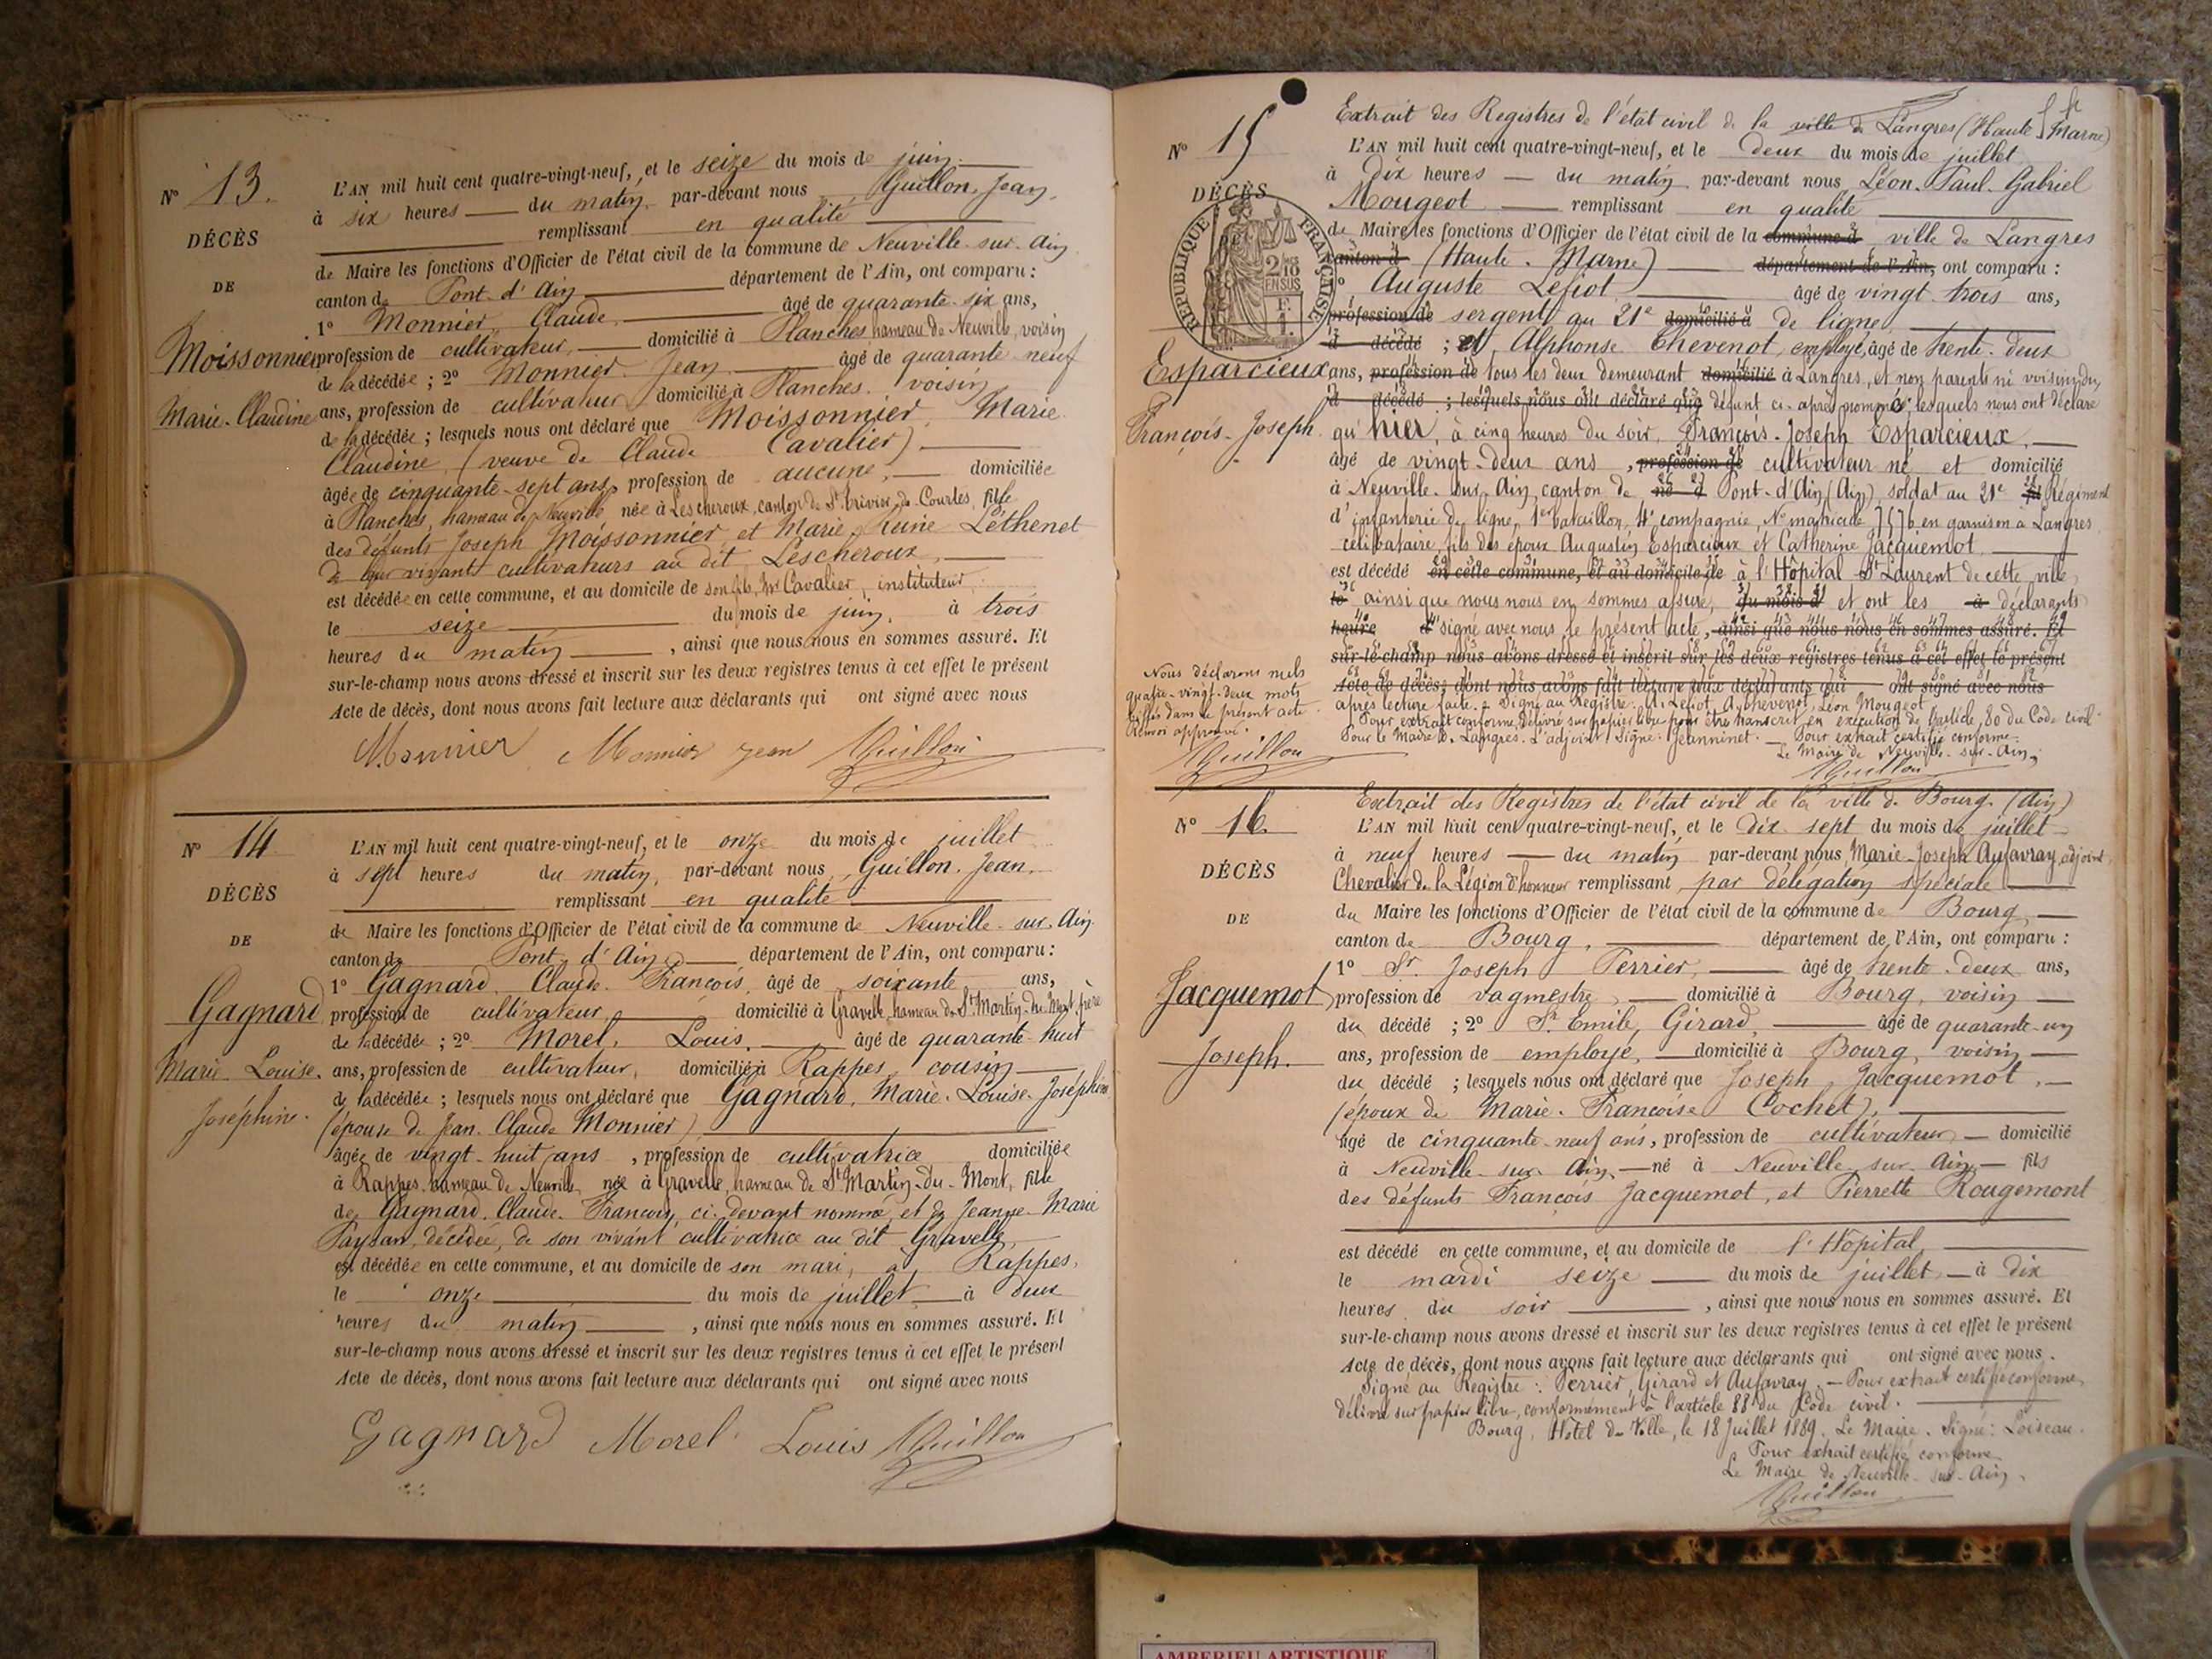 N° 13.
DÉCÈS
DE
Moissonnier
Marie-Claudine
L'AN mil huit cent quatre-vingt-neuf, et le seize du mois de juin
à six heures du matin, par-devant nous Guillon, Jean,
remplissant en qualité
de Maire les fonctions d'Officier de l'état civil de la commune de Neuville-sur-Ain
canton de Pont-d'Ain département de l'Ain, ont comparu :
1° Monnier, Claude, âgé de quarante-six ans,
profession de cultivateur, domicilié à Planches, hameau de Neuville, voisin
de la décédée ; 2° Monnier Jean, âgé de quarante-neuf
ans, profession de cultivateur domicilié à Planches, voisin
de la décédée ; lesquels nous ont déclaré que Moissonnier, Marie
Claudine (veuve de Claude Cavalier)
âgée de cinquante-sept ans, profession de aucune, domiciliée
à Planches, hameau de Neuville née à Lescheroux, canton de St Trivier-de-Courtes, fille
des défunts Joseph Moissonnier et Marie-Reine Léthenet
de leur vivant cultivateurs au dit Lescheroux,
est décédée en cette commune, et au domicile de son fils, Mr Cavalier, instituteur
le seize du mois de juin, à trois
heures du matin, ainsi que nous nous en sommes assuré. Et
sur-le-champ nous avons dressé et inscrit sur les deux registres tenus à cet effet le présent
Acte de décès, dont nous avons fait lecture aux déclarants qui ont signé avec nous
Monnier Monnier jean JGuillon
N° 14
DÉCÈS
DE
Gagnard
Marie-Louise-
Joséphine.
L'AN mil huit cent quatre-vingt-neuf, et le onze du mois de juillet
à sept heures du matin, par-devant nous, Guillon, Jean,
remplissant en qualité
de Maire les fonctions d'Officier de l'état civil de la commune de Neuville-sur-Ain
canton de Pont-d'Ain département de l'Ain, ont comparu :
1° Gagnard, Claude-François, âgé de soixante ans,
profession de cultivateur, domicilié à Gravelle, hameau de St Martin-du-Mont, père
de la décédée ; 2° Morel, Louis, âgé de quarante-huit
ans, profession de cultivateur, domicilié à Rappes, cousin
de la décédée ; lesquels nous ont déclaré que Gagnard, Marie-Louise-Joséphine
(épouse de Jean-Claude Monnier)
âgée de vingt-huit ans, profession de cultivatrice domiciliée
à Rappes, hameau de Neuville, née à Gravelle, hameau de St Martin-du-Mont, fille
de Gagnard, Claude-François, ci-devant nommé, et de Jeanne-Marie
Paysan, décédée, de son vivant cultivatrice au dit Gravelle,
est décédée en cette commune, et au domicile de son mari, à Rappes,
le onze du mois de juillet à deux
heures du matin, ainsi que nous nous en sommes assuré. Et
sur-le-champ nous avons dressé et inscrit sur les deux registres tenus à cet effet le présent
Acte de décès, dont nous avons fait lecture aux déclarants qui ont signé avec nous
Gagnard Morel Louis JGuillon
N° 15
DÉCÈS
RÉPUBLIQUE FRANÇAISE
2/10 EN SUS
Esparcieux
François-Joseph
Extrait des Registres de l'état civil de la ville de Langres (Haute Marne)
L'AN mil huit cent quatre-vingt-neuf, et le deux du mois de juillet
à dix heures du matin par-devant nous, Léon-Paul-Gabriel
Mougeot remplissant en qualité
de Maire les fonctions d'Officier de l'état civil de la commune d ville de Langres
canton d (Haute-Marne) département de l'Ain, ont comparu :
Auguste Lepiot, âgé de vingt-trois ans,
profession de sergent au 21e domicilié à de ligne,
d décédé ; et Alphonse Chevenot, employé, âgé de trente-deux
ans, profession de tous les deux demeurant domicilié à Langres, et non parents ni voisins du
d décédé ; lesquels nous ont déclaré que défunt ci-après nommé, lesquels nous ont déclaré
qu'hier, à cinq heures du soir, François-Joseph Esparcieux,
âgé de vingt-deux ans, profession de cultivateur né et domicilié
à Neuville-sur-Ain, canton de né à Pont-d'Ain (Ain), soldat au 21e Régiment
d'infanterie de ligne, 1er bataillon, 4e compagnie, N° matricule 7576 en garnison à Langres
célibataire, fils des époux Augustin Esparcieux et Catherine Jacquemot,
est décédé en cette commune, et au domicile de à l'Hôpital St Laurent de cette ville,
le ainsi que nous nous en sommes assuré, du mois d et ont les à déclarants
heure d signé avec nous le présent acte, ainsi que nous nous en sommes assuré. Et
sur-le-champ nous avons dressé et inscrit sur les deux registres tenus à cet effet le présent
Acte de décès, dont nous avons fait lecture aux déclarants qui ont signé avec nous
après lecture faite. Signé au Registre : A. Lepiot, A. Chevenot, Léon Mougeot
Pour extrait conforme, délivré sur papier libre pour être transcrit en exécution de l'article 80 du Code civil
Pour le Maire de Langres. L'adjoint Signé : Jeanninet. Pour extrait certifié conforme.
Le Maire de Neuville-sur-Ain,
JGuillon
Nous déclarons nuls
quatre-vingt-deux mots
biffés dans le présent acte
Renvoi approuvé.
JGuillon
N° 16.
DÉCÈS
DE
Jacquemot
Joseph.
Extrait des Registres de l'état civil de la ville de Bourg (Ain)
L'AN mil huit cent quatre-vingt-neuf, et le dix-sept du mois de juillet
à neuf heures du matin par-devant nous, Marie-Joseph Aufavray, adjoint,
Chevalier de la Légion d'honneur remplissant par délégation spéciale
du Maire les fonctions d'Officier de l'état civil de la commune de Bourg,
canton de Bourg, département de l'Ain, ont comparu :
1° Sr Joseph Perrier, âgé de trente-deux ans,
profession de vagmestre, domicilié à Bourg, voisin
du décédé ; 2° Sr Emile Girard, âgé de quarante-un
ans, profession de employé, domicilié à Bourg, voisin
du décédé ; lesquels nous ont déclaré que Joseph Jacquemot,
(époux de Marie-Françoise Cochet),
âgé de cinquante-neuf ans, profession de cultivateur domicilié
à Neuville-sur-Ain, né à Neuville-sur-Ain fils
des défunts François Jacquemot, et Pierrette Rougemont
est décédé en cette commune, et au domicile de l'Hôpital
le mardi seize du mois de juillet à dix
heures du soir, ainsi que nous nous en sommes assuré. Et
sur-le-champ nous avons dressé et inscrit sur les deux registres tenus à cet effet le présent
Acte de décès, dont nous avons fait lecture aux déclarants qui ont signé avec nous.
Signé au Registre : Perrier, Girard et Aufavray. Pour extrait certifié conforme,
délivré sur papier libre, conformément à l'article 88 du Code civil.
Bourg, Hôtel de Ville, le 18 Juillet 1889. Le Maire. Signé : Loiseau.
Pour extrait certifié conforme
Le Maire de Neuville-sur-Ain,
JGuillon
AMBERIEU ARTISTIQUE